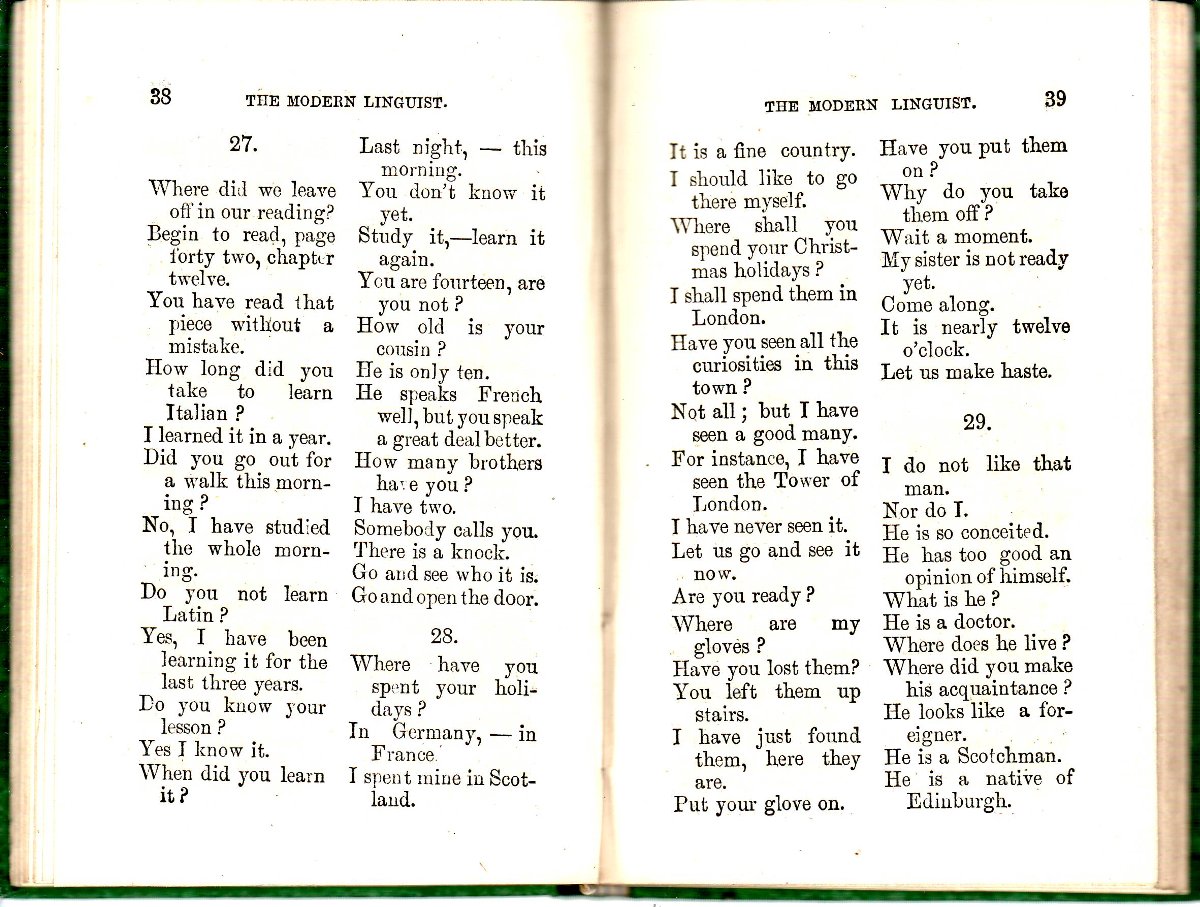 38
THE MODERN LINGUIST.
27.
Where did we leave
off in our reading?
Begin to read, page
forty two, chapter
twelve.
You have read that
piece without a
mistake.
How long did you
take to learn
Italian ?
I learned it in a year.
Did you go out for
a walk this morn-
ing ?
No, I have studied
the whole morn-
ing.
Do you not learn
Latin ?
Yes, I have been
learning it for the
last three years.
Do you know your
lesson ?
Yes I know it.
When did you learn
it ?
Last night, — this
morning.
You don't know it
yet.
Study it,—learn it
again.
You are fourteen, are
you not ?
How old is your
cousin ?
He is only ten.
He speaks French
well, but you speak
a great deal better.
How many brothers
have you ?
I have two.
Somebody calls you.
There is a knock.
Go and see who it is.
Go and open the door.
28.
Where have you
spent your holi-
days ?
In Germany, — in
France.
I spent mine in Scot-
land.
THE MODERN LINGUIST.
39
It is a fine country.
I should like to go
there myself.
Where shall you
spend your Christ-
mas holidays ?
I shall spend them in
London.
Have you seen all the
curiosities in this
town ?
Not all ; but I have
seen a good many.
For instance, I have
seen the Tower of
London.
I have never seen it.
Let us go and see it
now.
Are you ready ?
Where are my
gloves ?
Have you lost them?
You left them up
stairs.
I have just found
them, here they
are.
Put your glove on.
Have you put them
on ?
Why do you take
them off ?
Wait a moment.
My sister is not ready
yet.
Come along.
It is nearly twelve
o'clock.
Let us make haste.
29.
I do not like that
man.
Nor do I.
He is so conceited.
He has too good an
opinion of himself.
What is he ?
He is a doctor.
Where does he live ?
Where did you make
his acquaintance ?
He looks like a for-
eigner.
He is a Scotchman.
He is a native of
Edinburgh.